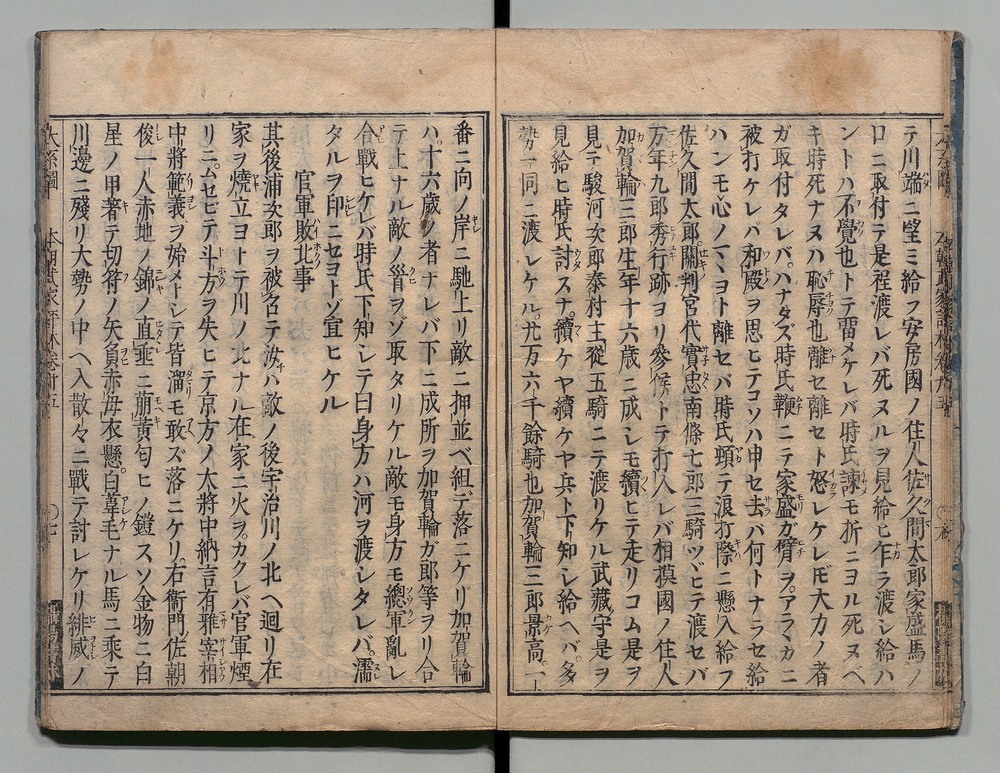 テ川端ニ望ミ給フ安房國ノ住人佐久間太郎家盛馬ノ
口ニ取付テ是程渡レバ死ヌルヲ見給ヒ乍ラ渡シ給ハ
ントハ不覺也トテ畱メケレバ時氏諫モ折ニヨル死ヌベ
キ時死ナヌハ恥辱也離セ離セト怒レケレ𪜈大力ノ者
ガ取付タレバハナタズ時氏鞭ニテ家盛ガ臂ヲアラヽカニ
被打ケレバ和殿ヲ思ヒテコソハ申セ去バ何トナラセ給
ハンモ心ノマヽヨト離セバ時氏頭テ浪打際ニ懸入給フ
佐久間太郎關判官代實忠南條七郎三騎ツヾヒテ渡セバ
万年九郎秀行跡ヨリ參候トテ打入レバ相模國ノ住人
加賀輪三郎生年十六歳ニ成シモ續ヒテ走リコム是ヲ
見テ駿河次郎泰村主從五騎ニテ渡リケル武藏守是ヲ
見給ヒ時氏討スナ續ケヤ續ケヤ兵ト下知シ給ヘバ多
勢一同ニ渡シケル尤万六千餘騎也加賀輪三郎景高一
番ニ向ノ岸ニ馳上リ敵ニ押並ベ組デ落ニケリ加賀輪
ハ十六歳ノ者ナレバ下ニ成所ヲ加賀輪ガ郎等ヲリ合
テ上ナル敵ノ首ヲゾ取タリケル敵モ身方モ總軍亂レ
合戰ヒケレバ時氏下知シテ曰身方ハ河ヲ渡シタレバ濡
タルヲ印ニセヨトゾ宣ヒケル
官軍敗北事
其後浦次郎ヲ被召テ汝ハ敵ノ後宇治川ノ北ヘ廻リ在
家ヲ燒立ヨトテ川ノ北ナル在家ニ火ヲカクレバ官軍煙
リニムセビテ斗方ヲ失ヒテ京方ノ大將中納言有雅宰相
中將範義ヲ始メトシテ皆溜モ敢ズ落ニケリ右衞門佐朝
俊一人赤地ノ錦ノ直垂ニ萠黄匂ヒノ鎧スソ金物ニ白
星ノ甲著テ切符ノ矢負赤母衣懸白葦毛ナル馬ニ乘テ
川邊ニ殘リ大勢ノ中ヘ入散々ニ戰テ討レケリ緋威ノ
大系圖 本朝武家評林卷 五 七